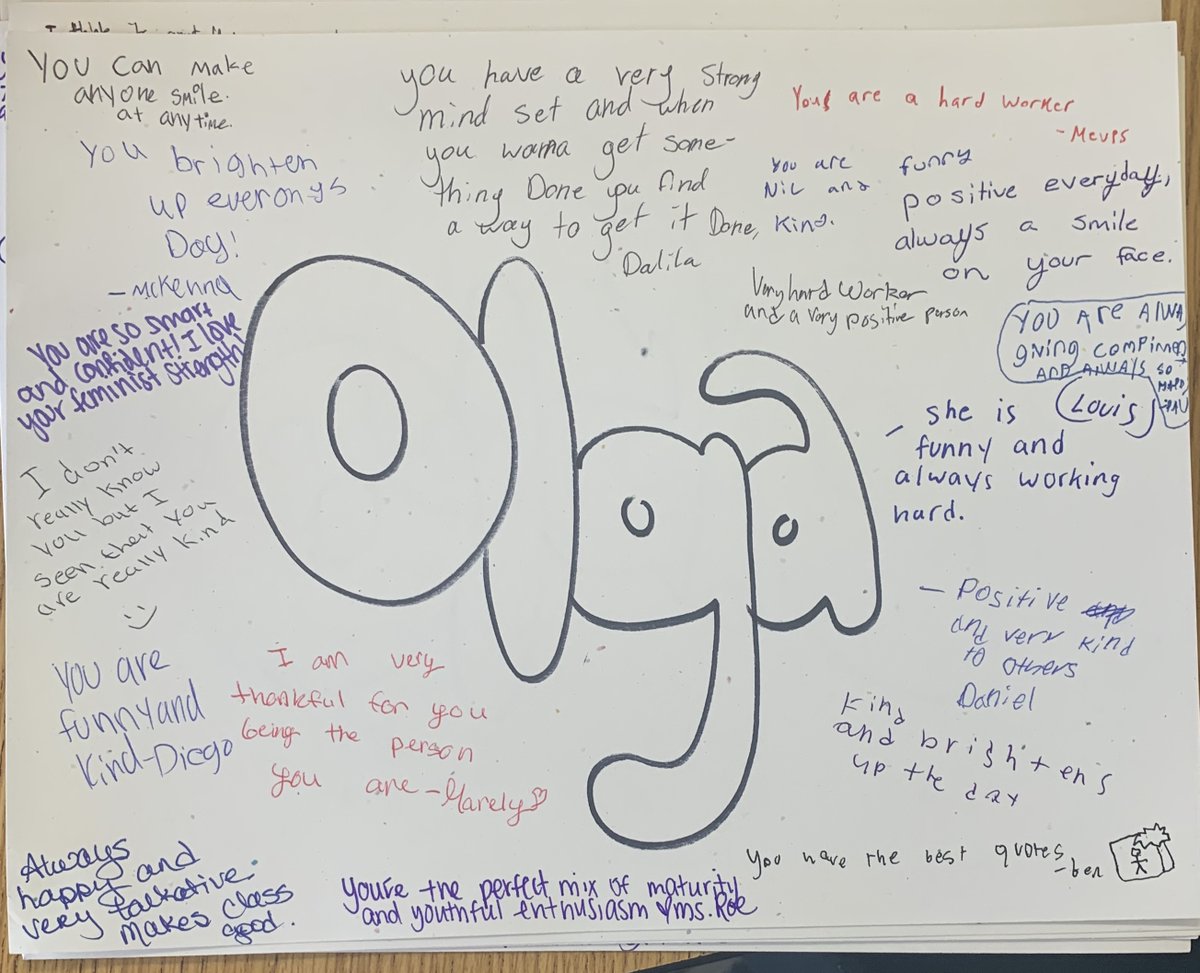 You can make
anyone smile.
at anytime.
You brighten
up everonys
Day!
- McKenna
You are so smart
and confident! I love
your feminist strength!
I don't
really know
you but I
seen that you
are really kind
:)
You are
funny and
kind-Diego
Always
happy and
very talkative.
makes class
good.
you have a very strong
mind set and when
you wanna get some-
thing Done you find
a way to get it Done,
Dalila
Olga
I am very
thankful for you
being the person
you are - Yarely
You're the perfect mix of maturity
and youthful enthusiasm ♥ ms. Roe
are a hard worker
You are
Nic and
Kind.
funny
positive everyday,
always a smile
on your face.
Very hard Worker
and a very positive person
YOU ARE Alwa
giving
AND ALWAYS so
(Louis)
- she is
funny and
always working
hard.
- Positive
and very kind
to others
Daniel
Kind
and brightens
up the day
You have the best quotes
-ben